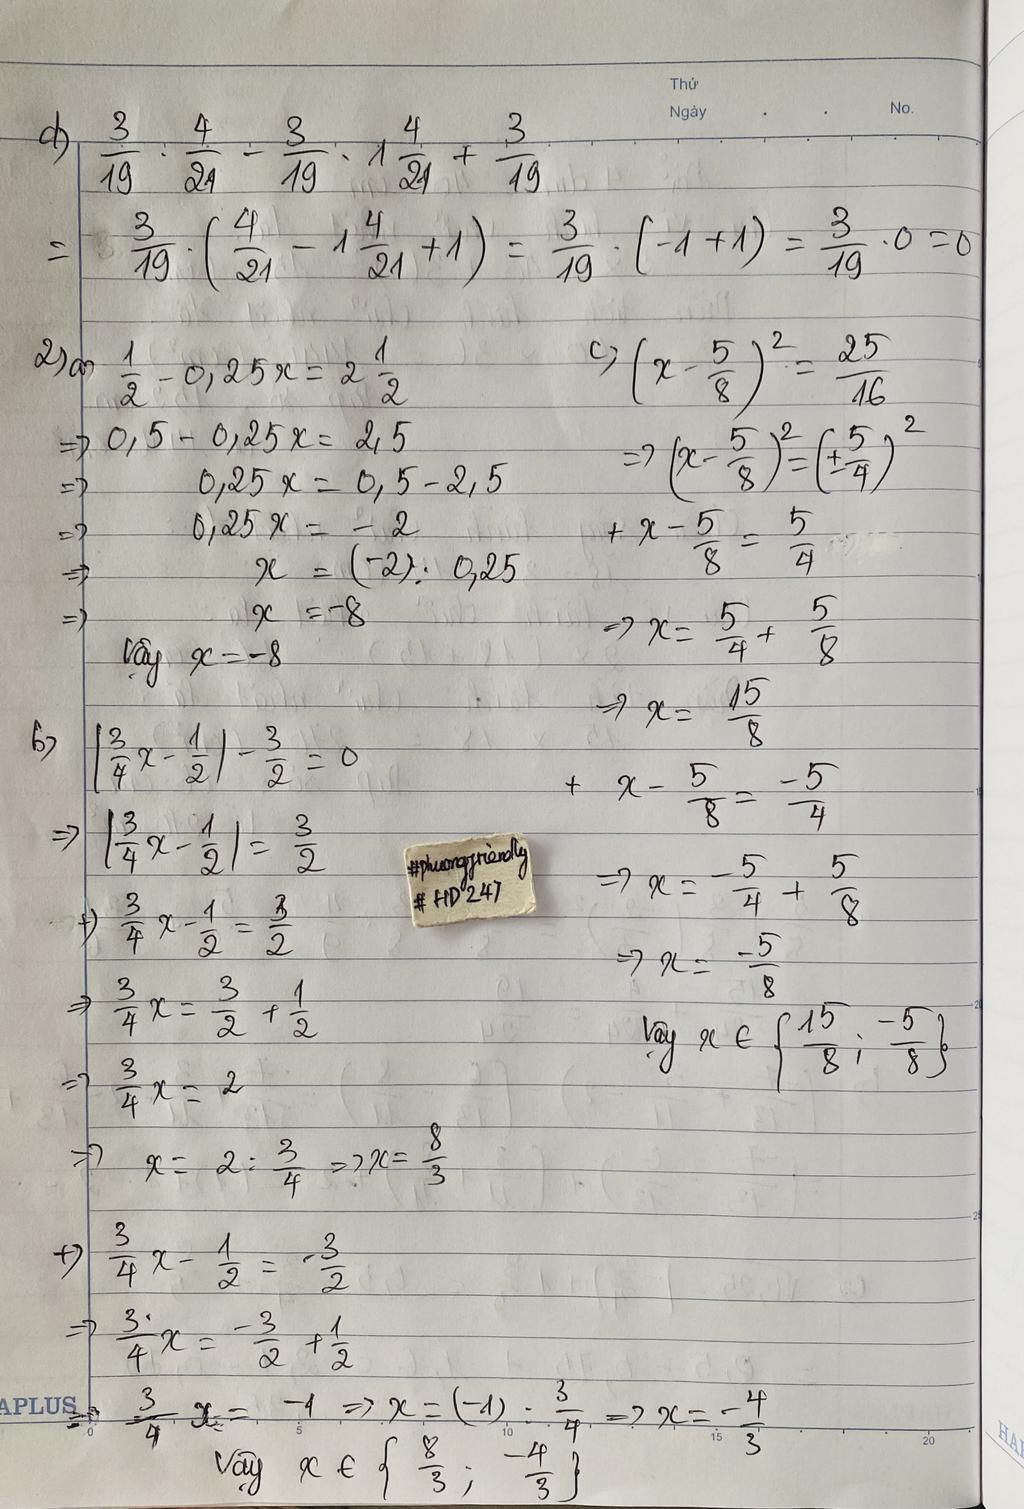 Thứ
Ngày . . No.
d) 3/19 . 4/21 - 3/19 . 1 4/21 + 3/19
= 3/19 . (4/21 - 1 4/21 + 1) = 3/19 . (-1 + 1) = 3/19 . 0 = 0
2) a) 1/2 - 0,25x = 2 1/2
=> 0,5 - 0,25x = 2,5
=> 0,25x = 0,5 - 2,5
=> 0,25x = -2
=> x = (-2) : 0,25
=> x = -8
Vậy x = -8
b) |3/4 x - 1/2| - 3/2 = 0
=> |3/4 x - 1/2| = 3/2
+) 3/4 x - 1/2 = 3/2
=> 3/4 x = 3/2 + 1/2
=> 3/4 x = 2
=> x = 2 : 3/4 => x = 8/3
+) 3/4 x - 1/2 = -3/2
=> 3/4 x = -3/2 + 1/2
=> 3/4 x = -1 => x = (-1) : 3/4 => x = -4/3
Vậy x ∈ {8/3 ; -4/3}
c) (x - 5/8)² = 25/16
=> (x - 5/8)² = (±5/4)²
+ x - 5/8 = 5/4
=> x = 5/4 + 5/8
=> x = 15/8
+ x - 5/8 = -5/4
=> x = -5/4 + 5/8
=> x = -5/8
Vậy x ∈ {15/8 ; -5/8}
#phuongfriendly
#HD247
APLUS
0 5 10 15 20
HAP